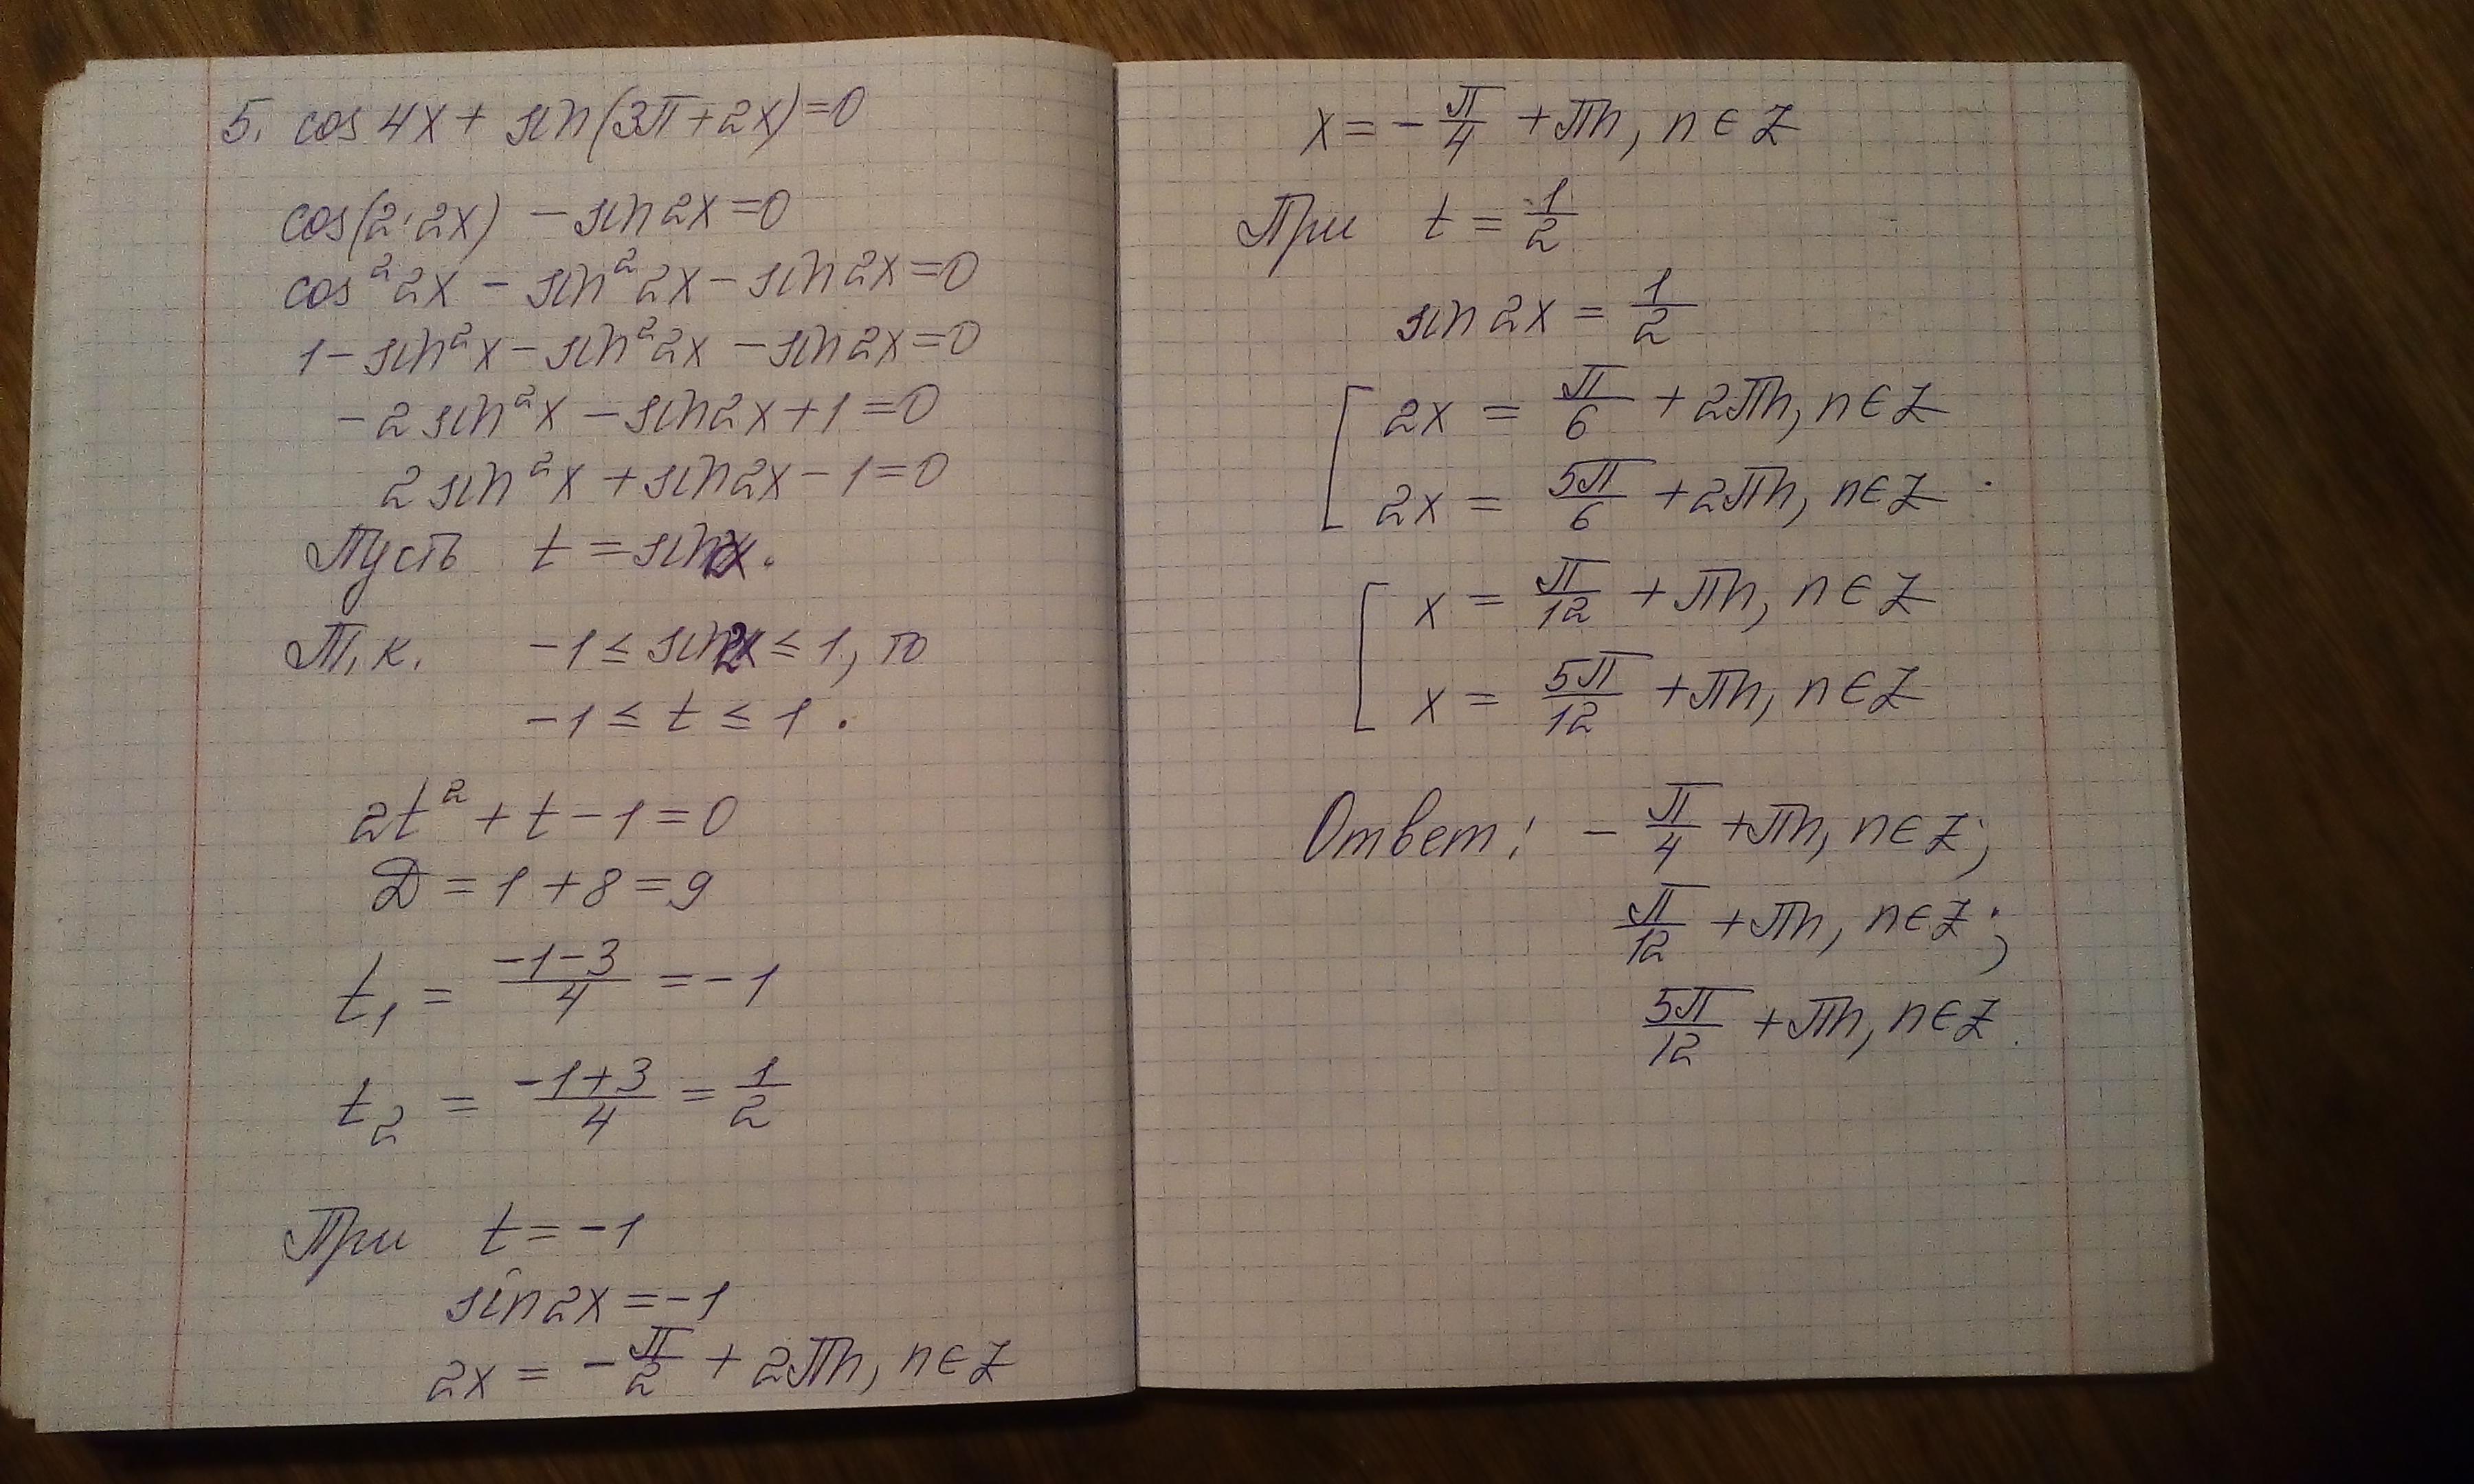 5. cos 4x + sin(3π + 2x) = 0
cos(2·2x) − sin 2x = 0
cos²2x − sin²2x − sin 2x = 0
1 − sin²x − sin²2x − sin 2x = 0
−2 sin²x − sin 2x + 1 = 0
2 sin²x + sin 2x − 1 = 0
Пусть t = sin 2x.
Т.к. −1 ≤ sin 2x ≤ 1, то
−1 ≤ t ≤ 1.
2t² + t − 1 = 0
D = 1 + 8 = 9
t₁ = (−1−3)/4 = −1
t₂ = (−1+3)/4 = 1/2
При t = −1
sin 2x = −1
2x = −π/2 + 2πn, n ∈ Z
x = −π/4 + πn, n ∈ Z
При t = 1/2
sin 2x = 1/2
[ 2x = π/6 + 2πn, n ∈ Z
2x = 5π/6 + 2πn, n ∈ Z .
[ x = π/12 + πn, n ∈ Z
x = 5π/12 + πn, n ∈ Z
Ответ: −π/4 + πn, n ∈ Z;
π/12 + πn, n ∈ Z;
5π/12 + πn, n ∈ Z.